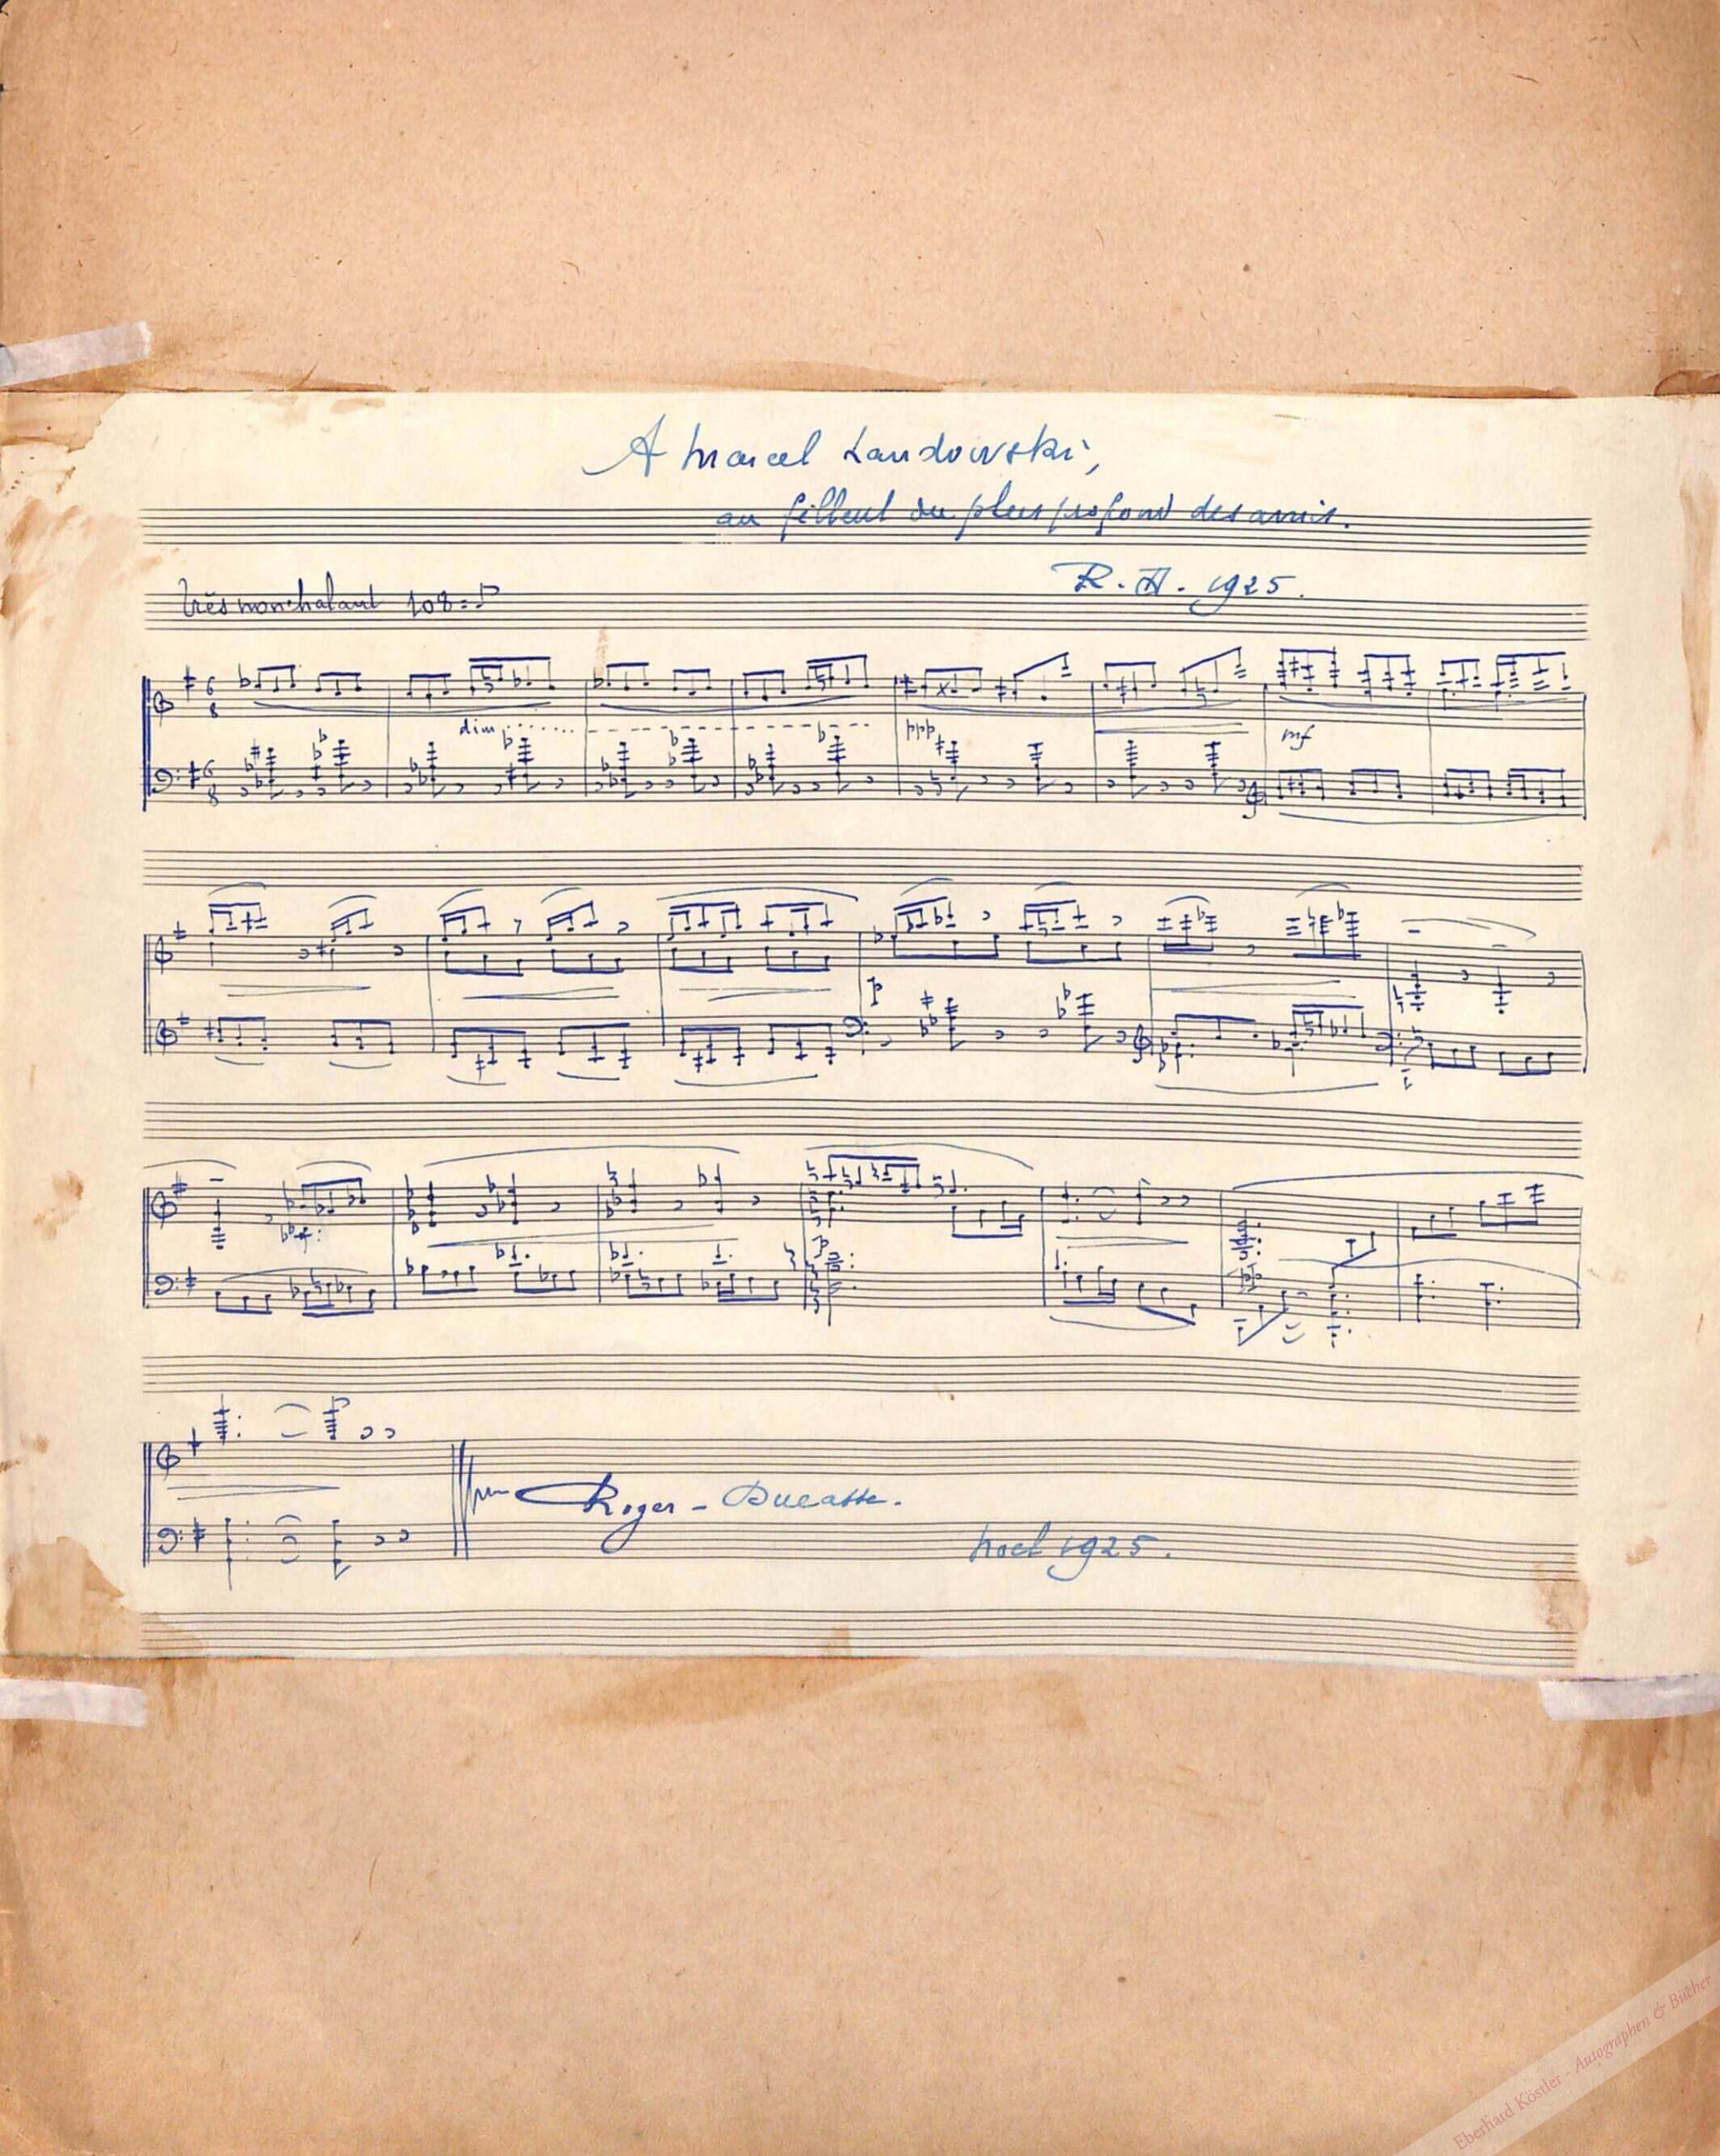 A Marcel Landowski,
au filleul du plus profond des amis.
R. D. 1925.
Très nonchalant 108 = ♪
6
8
dim
ppp
mf
6
8
p
p
Roger-Ducasse.
Noel 1925.
Eberhard Köstler - Autographen & Bücher